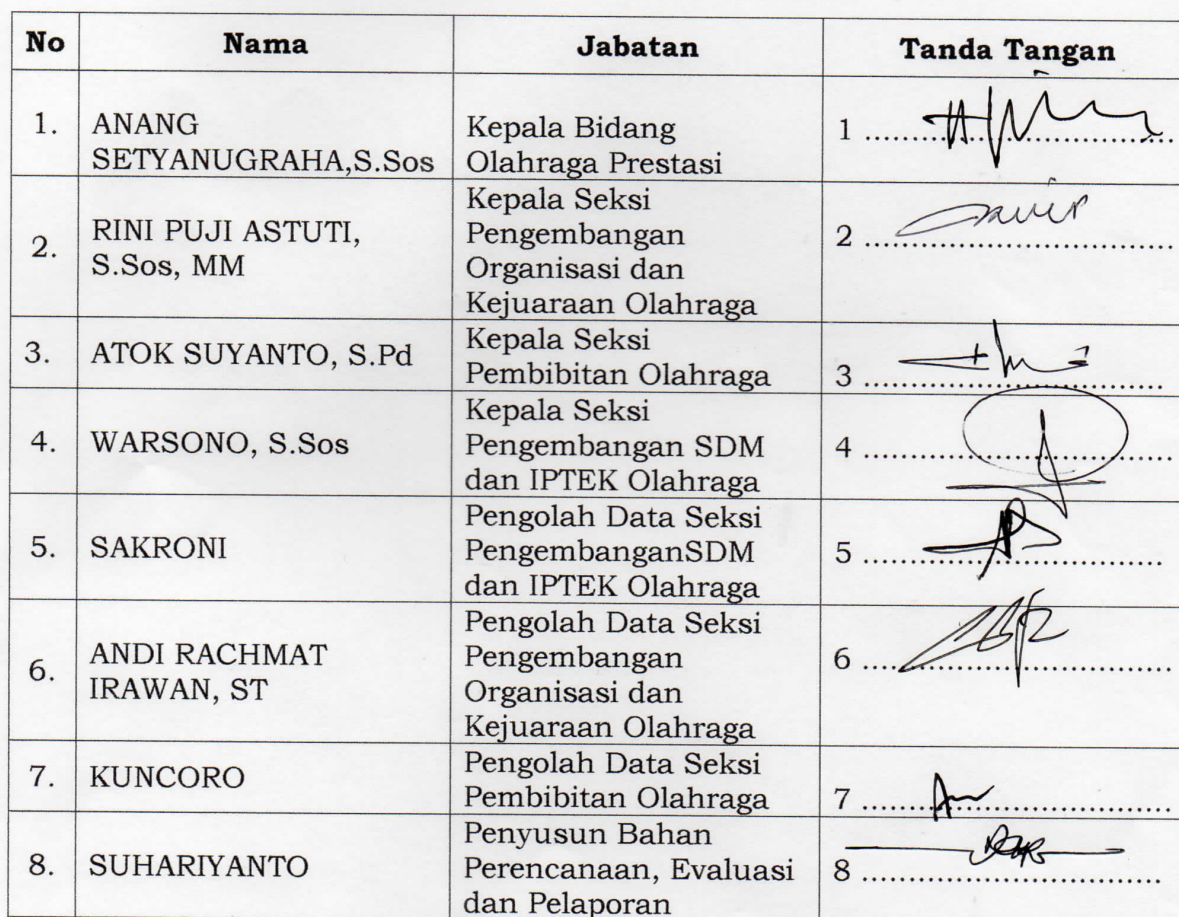 No Nama Jabatan Tanda Tangan
1. ANANG
SETYANUGRAHA,S.Sos
Kepala Bidang
Olahraga Prestasi
1 ..............................
2. RINI PUJI ASTUTI,
S.Sos, MM
Kepala Seksi
Pengembangan
Organisasi dan
Kejuaraan Olahraga
2 ..............................
3. ATOK SUYANTO, S.Pd
Kepala Seksi
Pembibitan Olahraga
3 ..............................
4. WARSONO, S.Sos
Kepala Seksi
Pengembangan SDM
dan IPTEK Olahraga
4 ..............................
5. SAKRONI
Pengolah Data Seksi
PengembanganSDM
dan IPTEK Olahraga
5 ..............................
6. ANDI RACHMAT
IRAWAN, ST
Pengolah Data Seksi
Pengembangan
Organisasi dan
Kejuaraan Olahraga
6 ..............................
7. KUNCORO
Pengolah Data Seksi
Pembibitan Olahraga
7 ..............................
8. SUHARIYANTO
Penyusun Bahan
Perencanaan, Evaluasi
dan Pelaporan
8 ..............................